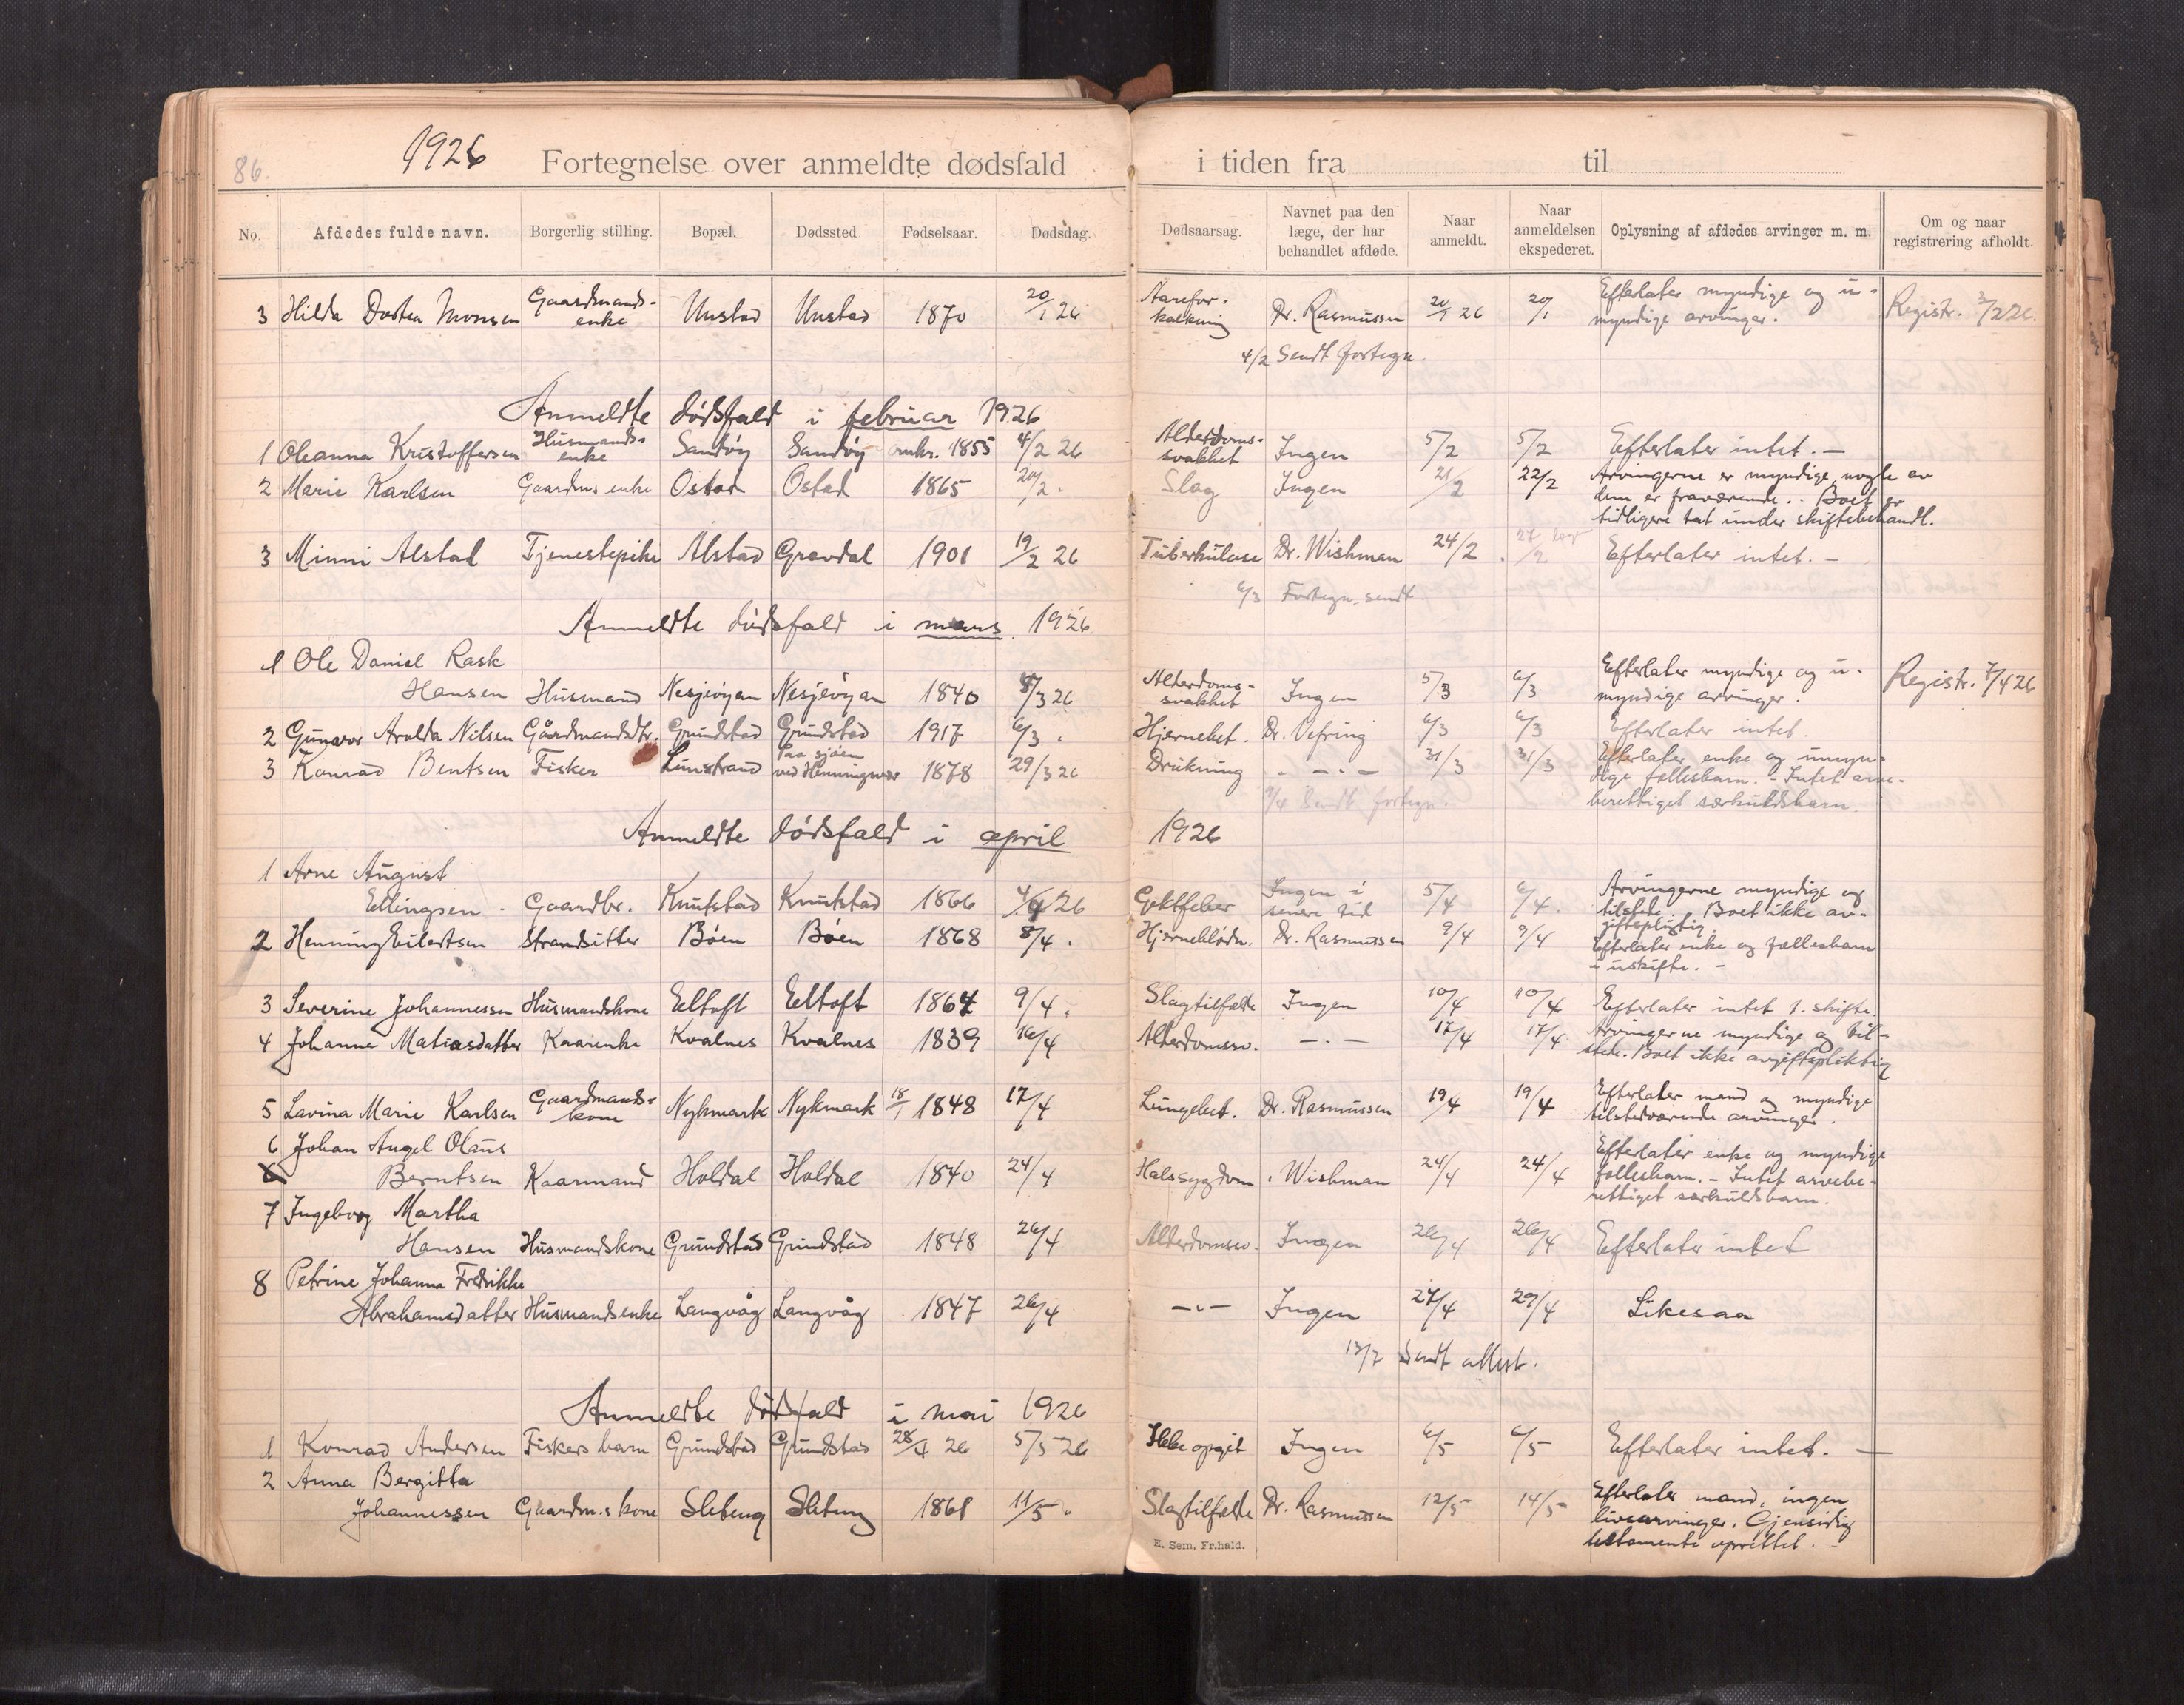 86.
1926 Fortegnelse over anmeldte dødsfald i tiden fra til
No. Afdødes fulde navn. Borgerlig stilling. Bopæl. Dødssted Fødselsaar. Dødsdag. Dødsaarsag. Navnet paa den læge, der har behandlet afdøde. Naar anmeldt. Naar anmeldelsen ekspederet. Oplysning af afdødes arvinger m. m. Om og naar registrering afholdt.
3 Hilda Dortea Monsen Gaardmands- enke Unstad Unstad 1870 20/1 26 Aarefor- kalkning Dr. Rasmussen 20/1 26 20/1 Efterlater myndige og u- myndige arvinger. Registr. 3/2 26.
4/2 Sendt fortegn.
Anmeldte dødsfald i februar 1926
1 Oleanna Kristoffersen Husmands- enke Sandøy Sandøy omkr. 1855 4/2 26 Alderdoms- svakhet Ingen 5/2 5/2 Efterlater intet. —
2 Marie Karlsen Gaardms enke Ostad Ostad 1865 20/2 . Slag Ingen 21/2 22/2 Arvingerne er myndige, nogle av
dem er fraværende. - Boet er
tidligere tat under skiftebehandl.
3 Minni Alstad Tjenestepike Alstad Gravdal 1901 19/2 26 Tuberkulose Dr. Wishman 24/2 Efterlater intet. —
6/3 Fortegn. sendt
Anmeldte dødsfald i mars 1926
1 Ole Daniel Rask
Hansen Husmand Nesjeøyan Nesjeøyan 1840 /3 26 Alderdoms- svakhet Ingen 5/3 6/3 Efterlater myndige og u- myndige arvinger. Registr. 7/4 26
2 Gunvor Arolda Nilsen Gårdmandsdtr. Grundstad Grundstad 1917 6/3 . Hjernebet. Dr. Vefring 6/3 6/3 Efterlater intet.
3 Konrad Bentsen Fisker Limstrand Paa sjøen ved Henningsvær 1878 29/3 26 Drukning . — . — 31/3 31/3 Efterlater enke og umyn-
dige fellesbarn. - Intet arve-
berettiget særkuldsbarn.
9/4 Sendt fortegn.
Anmeldte dødsfald i april 1926
1 Arne August
Ellingsen Gaardbr. Knutstad Knutstad 1866 4/4 26 Gektfeber Ingen i senere tid 5/4 6/4 . Arvingerne myndige og
tilstede. Boet ikke av-
giftspligtig.
2 Henning Eilertsen Strandsitter Bøen Bøen 1868 8/4 . Hjerneblødn. Dr. Rasmussen 9/4 9/4 Efterlater enke og fellesbarn
- i uskifte. -
3 Severine Johannessen Husmandskone Eeltoft Eeltoft 1864 9/4 . Slagtilfælde Ingen 10/4 10/4 Efterlater intet t. skifte.
4 Johanna Matiasdatter Kaarenke Kvalnes Kvalnes 1839 16/4 Alderdomssv. — . — 17/4 17/4 Arvingerne myndige og til-
stede. Boet ikke avgiftspliktig
5 Lavina Marie Karlsen Gaardmands- kone Nykmark Nykmark 18/1 1848 17/4 Lungebet. Dr. Rasmussen 19/4 19/4 Efterlater mand og myndige
tilstedværende arvinger.
6 Johan Angel Olaus
Berntsen Kaarmand Holdal Holdal 1840 24/4 Halssygdom . Wishman 24/4 24/4 Efterlater enke og myndige
fellesbarn. - Intet arvebe-
rettiget særkuldsbarn.
7 Ingeborg Martha
Hansen Husmandskone Grundstad Grundstad 1848 26/4 Alderdomssv. Ingen 26/4 26/4 Efterlater intet
8 Petrine Johanna Fredrikke
Abrahamsdatter Husmandsenke Langvåg Langvåg 1847 26/4 — . — Ingen 27/4 29/4 Likesaa
12/7 Sendt attest.
Anmeldte dødsfald i mai 1926
1 Konrad Andersen Fiskers barn Grundstad Grundstad 28/4 26 5/5 26 Ikke opgit Ingen 6/5 6/5 Efterlater intet. —
2 Anna Bergitta
Johannessen Gaardm.s kone Sleteng Sleteng 1861 11/5 . Slagtilfælde Dr. Rasmussen 12/5 14/5 Efterlater mand, ingen
livsarvinger. Gjensidig
testamente oprettet. -
E. Sem, Fr.hald.